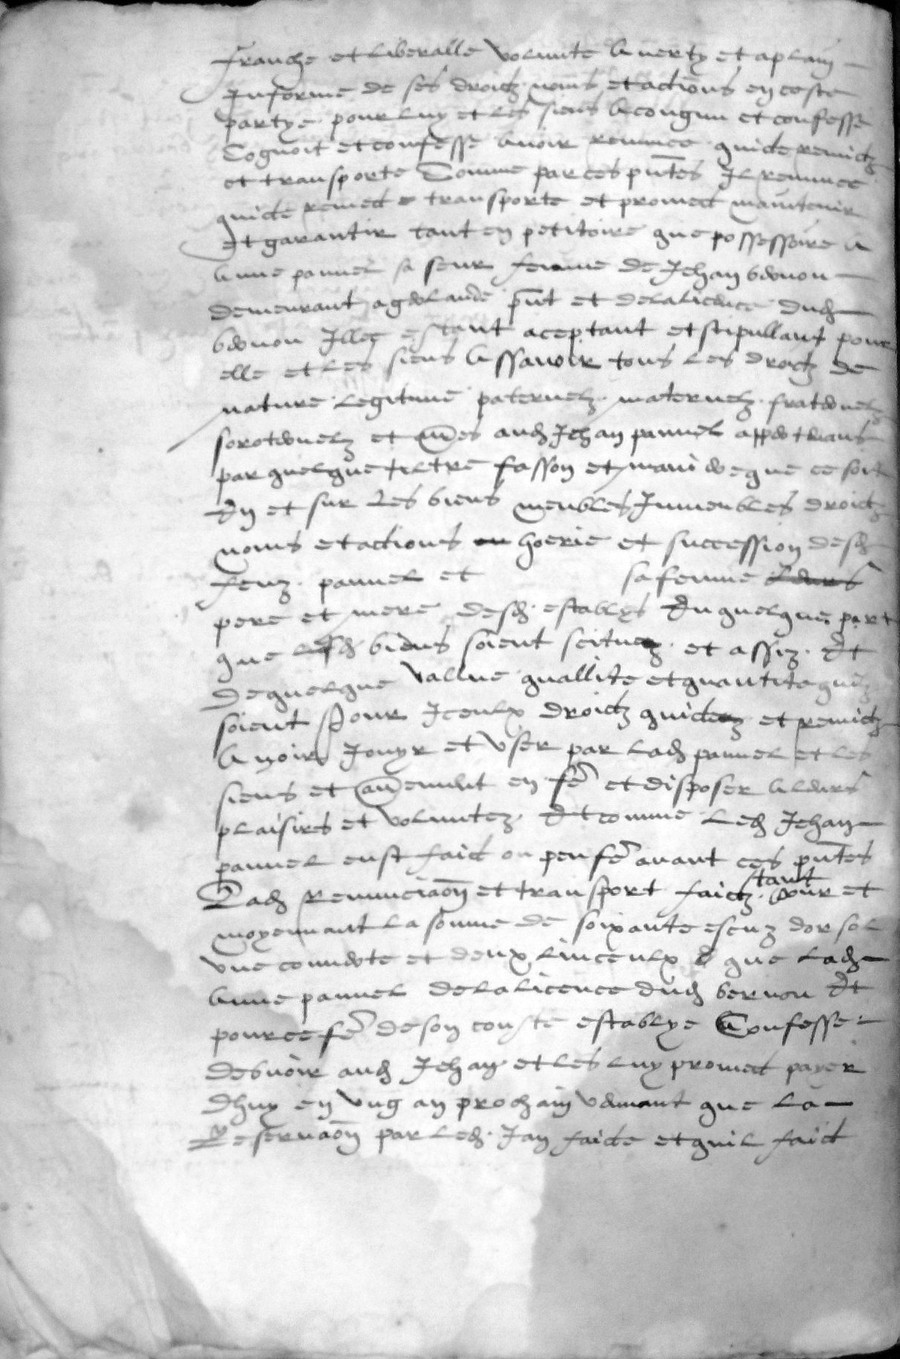 franche et liberalle volunte advertz et a plain
informe de ses droictz noms et actions en ceste
partye pour luy et les siens a congneu et confesse
Cognoit et confesse avoir renonce quicte remictz
et transporte Comme par ces pntes Il renonce
quicte remect et transporte et promect maintenir
Et garantir tant en petitoire que possessoire a
Anne pannel sa seur femme de Jehan bernon
demeurant a pnt et de la licence dud
bernon Illec estant aceptant et stipullant pour
elle et les siens Assavoir tous les droictz de
nature legitime paternelz maternelz fraternelz
sororternelz et aues aud Jehan pannel appertenans
par quelque tiltre fasson et maniere que ce soit
En et sur les biens meubles Inmeubles droictz
noms et actions hoerie et succession desd
feuz pannel et sa femme
pere et mere desd establys En quelque part
que lesd biens soient scituez et assiz Et
de quelque vallue quallite et quantite quilz
soient Pour Iceulx droictz quictez et remictz
Avoir Jouyr et user par lad pannel et les
siens et aument en fe et disposer a leurs
plaisirs et voluntez Et comme led Jehan
pannel eust faict ou peu fe avant ces pntes
Lad renunciaon et transport faictz tant pour et
moyennant la somme de soixante escuz dor sol
une couverte et deux linceulx que lad
Anne pannel de la licence dud bernon Et
pour ce fe de son couste establye Confesse
debvoir aud Jehan et les luy promect paier
dhuy en ung an prochain venant que la
Reservaon par led Jan faicte et quil faict